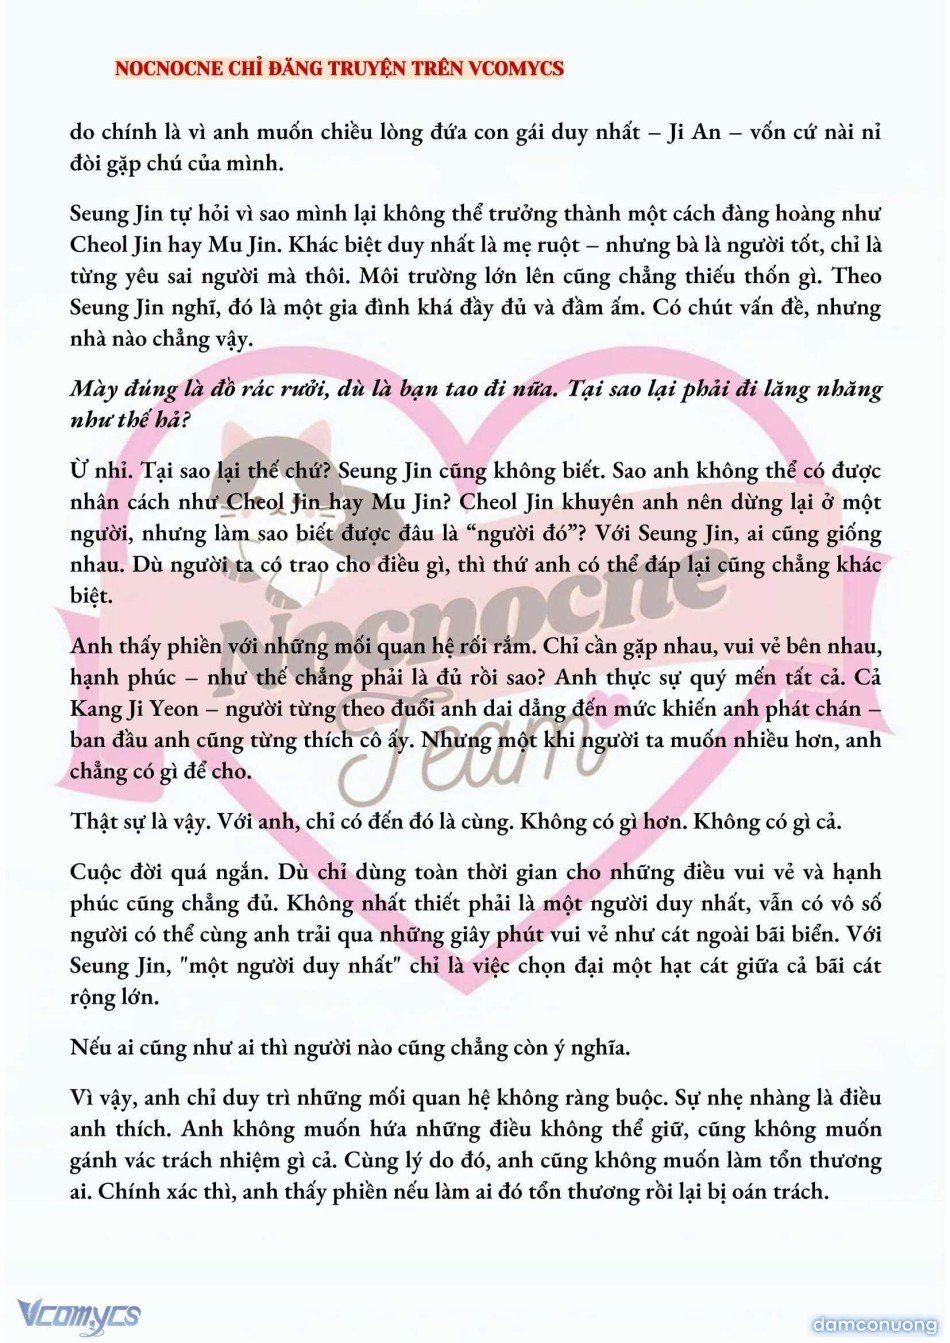 NOCNOCNE CHỈ ĐĂNG TRUYỆN TRÊN VCOMYCS
do chính là vì anh muốn chiều lòng đứa con gái duy nhất – Ji An – vốn cứ nài nỉ
đòi gặp chú của mình.
Seung Jin tự hỏi vì sao mình lại không thể trưởng thành một cách đàng hoàng như
Cheol Jin hay Mu Jin. Khác biệt duy nhất là mẹ ruột – nhưng bà là người tốt, chỉ là
từng yêu sai người mà thôi. Môi trường lớn lên cũng chẳng thiếu thốn gì. Theo
Seung Jin nghĩ, đó là một gia đình khá đầy đủ và đầm ấm. Có chút vấn đề, nhưng
nhà nào chẳng vậy.
Mày đúng là đồ rác rưởi, dù là bạn tao đi nữa. Tại sao lại phải đi lăng nhăng
như thế hả?
Ừ nhỉ. Tại sao lại thế chứ? Seung Jin cũng không biết. Sao anh không thể có được
nhân cách như Cheol Jin hay Mu Jin? Cheol Jin khuyên anh nên dừng lại ở một
người, nhưng làm sao biết được đâu là “người đó”? Với Seung Jin, ai cũng giống
nhau. Dù người ta có trao cho điều gì, thì thứ anh có thể đáp lại cũng chẳng khác
biệt.
Anh thấy phiền với những mối quan hệ rối rắm. Chỉ cần gặp nhau, vui vẻ bên nhau,
hạnh phúc – như thế chẳng phải là đủ rồi sao? Anh thực sự quý mến tất cả. Cả
Kang Ji Yeon – người từng theo đuổi anh dai dẳng đến mức khiến anh phát chán –
ban đầu anh cũng từng thích cô ấy. Nhưng một khi người ta muốn nhiều hơn, anh
chẳng có gì để cho.
Thật sự là vậy. Với anh, chỉ có đến đó là cùng. Không có gì hơn. Không có gì cả.
Cuộc đời quá ngắn. Dù chỉ dùng toàn thời gian cho những điều vui vẻ và hạnh
phúc cũng chẳng đủ. Không nhất thiết phải là một người duy nhất, vẫn có vô số
người có thể cùng anh trải qua những giây phút vui vẻ như cát ngoài bãi biển. Với
Seung Jin, "một người duy nhất" chỉ là việc chọn đại một hạt cát giữa cả bãi cát
rộng lớn.
Nếu ai cũng như ai thì người nào cũng chẳng còn ý nghĩa.
Vì vậy, anh chỉ duy trì những mối quan hệ không ràng buộc. Sự nhẹ nhàng là điều
anh thích. Anh không muốn hứa những điều không thể giữ, cũng không muốn
gánh vác trách nhiệm gì cả. Cùng lý do đó, anh cũng không muốn làm tổn thương
ai. Chính xác thì, anh thấy phiền nếu làm ai đó tổn thương rồi lại bị oán trách.
Nocnocne
Team
Vcomycs
damconuong